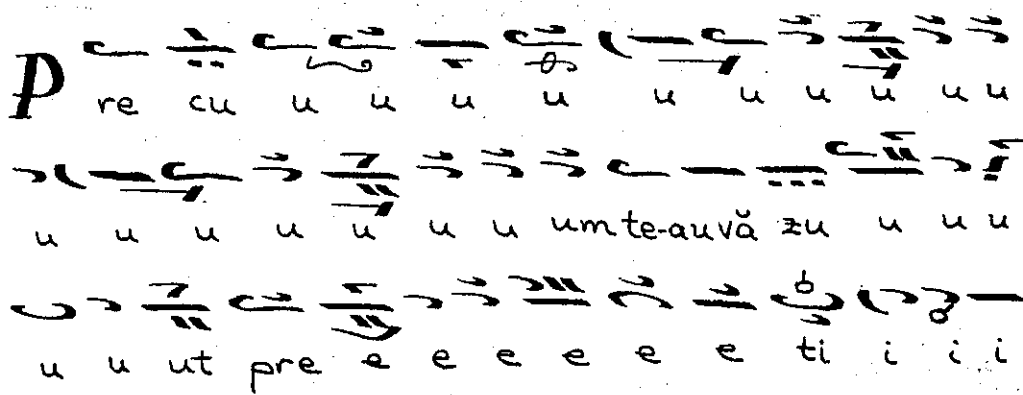 P re cu u u u u u u u u u u
u u u u u u u um te-au vă zu u u u
u u ut pre e e e e e e ti i i i